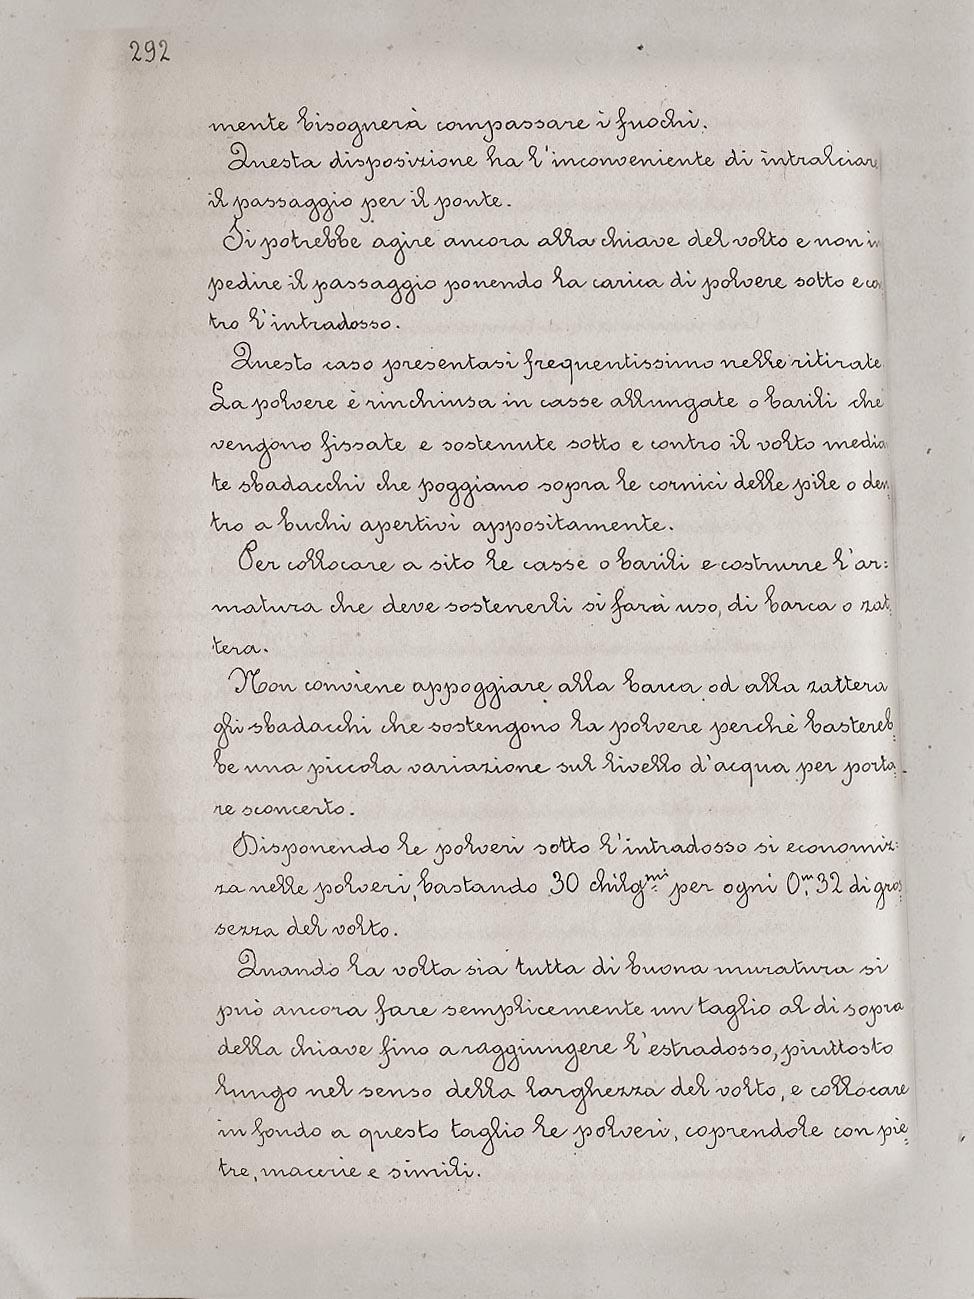 292
mente bisognerà compassare i fuochi.
Questa disposizione ha l'inconveniente di intralciare
il passaggio per il ponte.
Si potrebbe agire ancora alla chiave del volto e non im
pedire il passaggio ponendo la carica di polvere sotto e con
tro l'intradosso.
Questo caso presentasi frequentissimo nelle ritirate
La polvere è rinchiusa in casse allungate o barili che
vengono fissate e sostenute sotto e contro il volto median
te sbadacchi che poggiano sopra le cornici delle pile o den:
tro a buchi apertivi appositamente.
Per collocare a sito le casse o barili e costrurre l'ar:
matura che deve sostenerli si farà uso, di barca o zat
tera.
Non conviene appoggiare alla barca od alla zattera
gli sbadacchi che sostengono la polvere perchè bastereb:
be una piccola variazione sul livello d'acqua per porta:
re sconcerto.
Disponendo le polveri sotto l'intradosso si economiz:
za nelle polveri, bastando 30 chilg.mi per ogni 0,m32 di gros:
sezza del volto.
Quando la volta sia tutta di buona muratura si
può ancora fare semplicemente un taglio al di sopra
della chiave fino a raggiungere l'estradosso, piuttosto
lungo nel senso della larghezza del volto, e collocare
in fondo a questo taglio le polveri, coprendole con pie:
tre, macerie e simili.